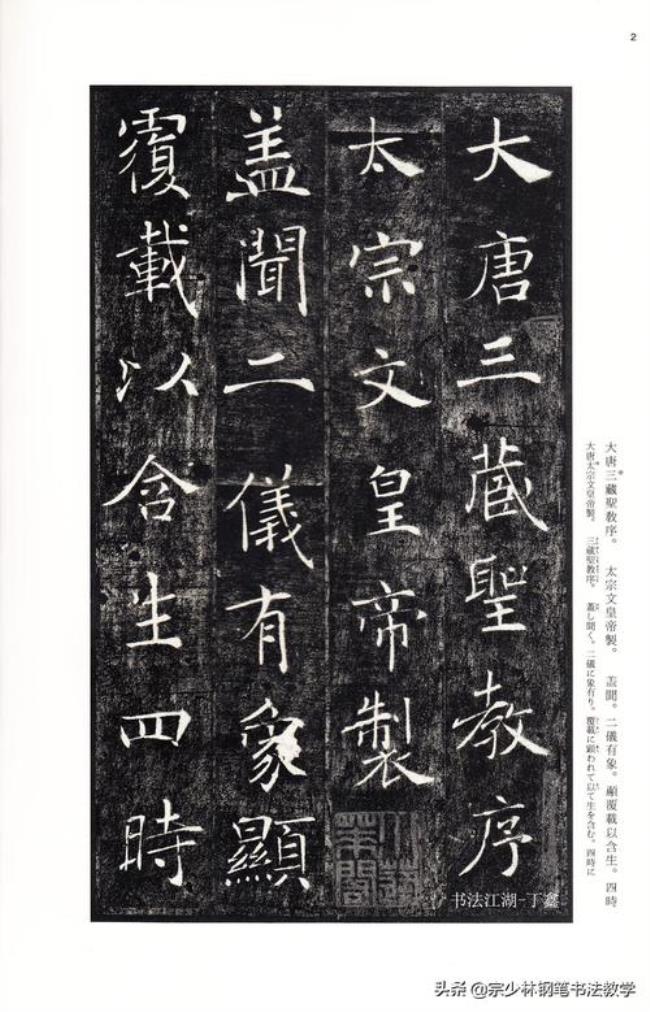 2
大唐三藏聖教序
太宗文皇帝製
盖聞二儀有象顯
覆載以含生四時
大唐三藏聖教序。 太宗文皇帝製。 盖聞。二儀有象。顯覆載以含生。四時
大唐太宗文皇帝製。 三蔵聖教序。 蓋し聞く。二儀に象有り。覆載に顕われて以て生を含む。四時に
书法江湖-丁鑫
头条 @宗少林钢笔书法教学